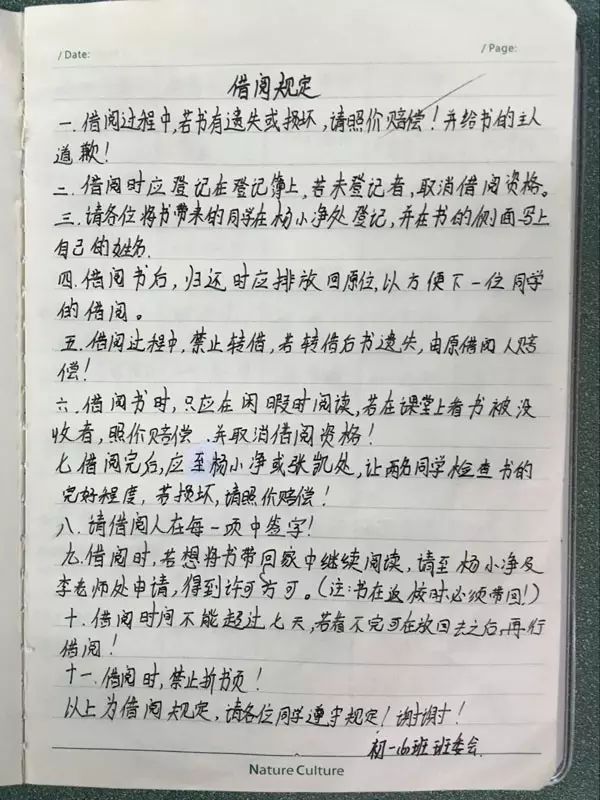 / Date:
/ Page:
借阅规定
一.借阅过程中,若书有遗失或损坏,请照价赔偿!并给书的主人
道歉!
二.借阅时应登记在登记簿上,若未登记者,取消借阅资格。
三.请各位将书带来的同学在杨小净处登记,并在书的侧面写上
自己的姓名.
四.借阅书后,归还时应排放回原位,以方便下一位同学
的借阅。
五.借阅过程中,禁止转借,若转借后书遗失,由原借阅人赔
偿!
六.借阅书时,只应在闲暇时阅读,若在课堂上看书被没
收者,照价赔偿.并取消借阅资格!
七.借阅完后,应至杨小净或张凯处,让两名同学检查书的
完好程度,若损坏,请照价赔偿!
八.请借阅人在每一项中签字!
九.借阅时,若想将书带回家中继续阅读,请至杨小净及
李老师处申请,得到许可方可。(注:书在返校时必须带回!)
十.借阅时间不能超过七天,若看不完可在放回去之后,再行
借阅!
十一.借阅时,禁止折书页!
以上为借阅规定,请各位同学遵守规定!谢谢!
班班委会.
Nature Culture